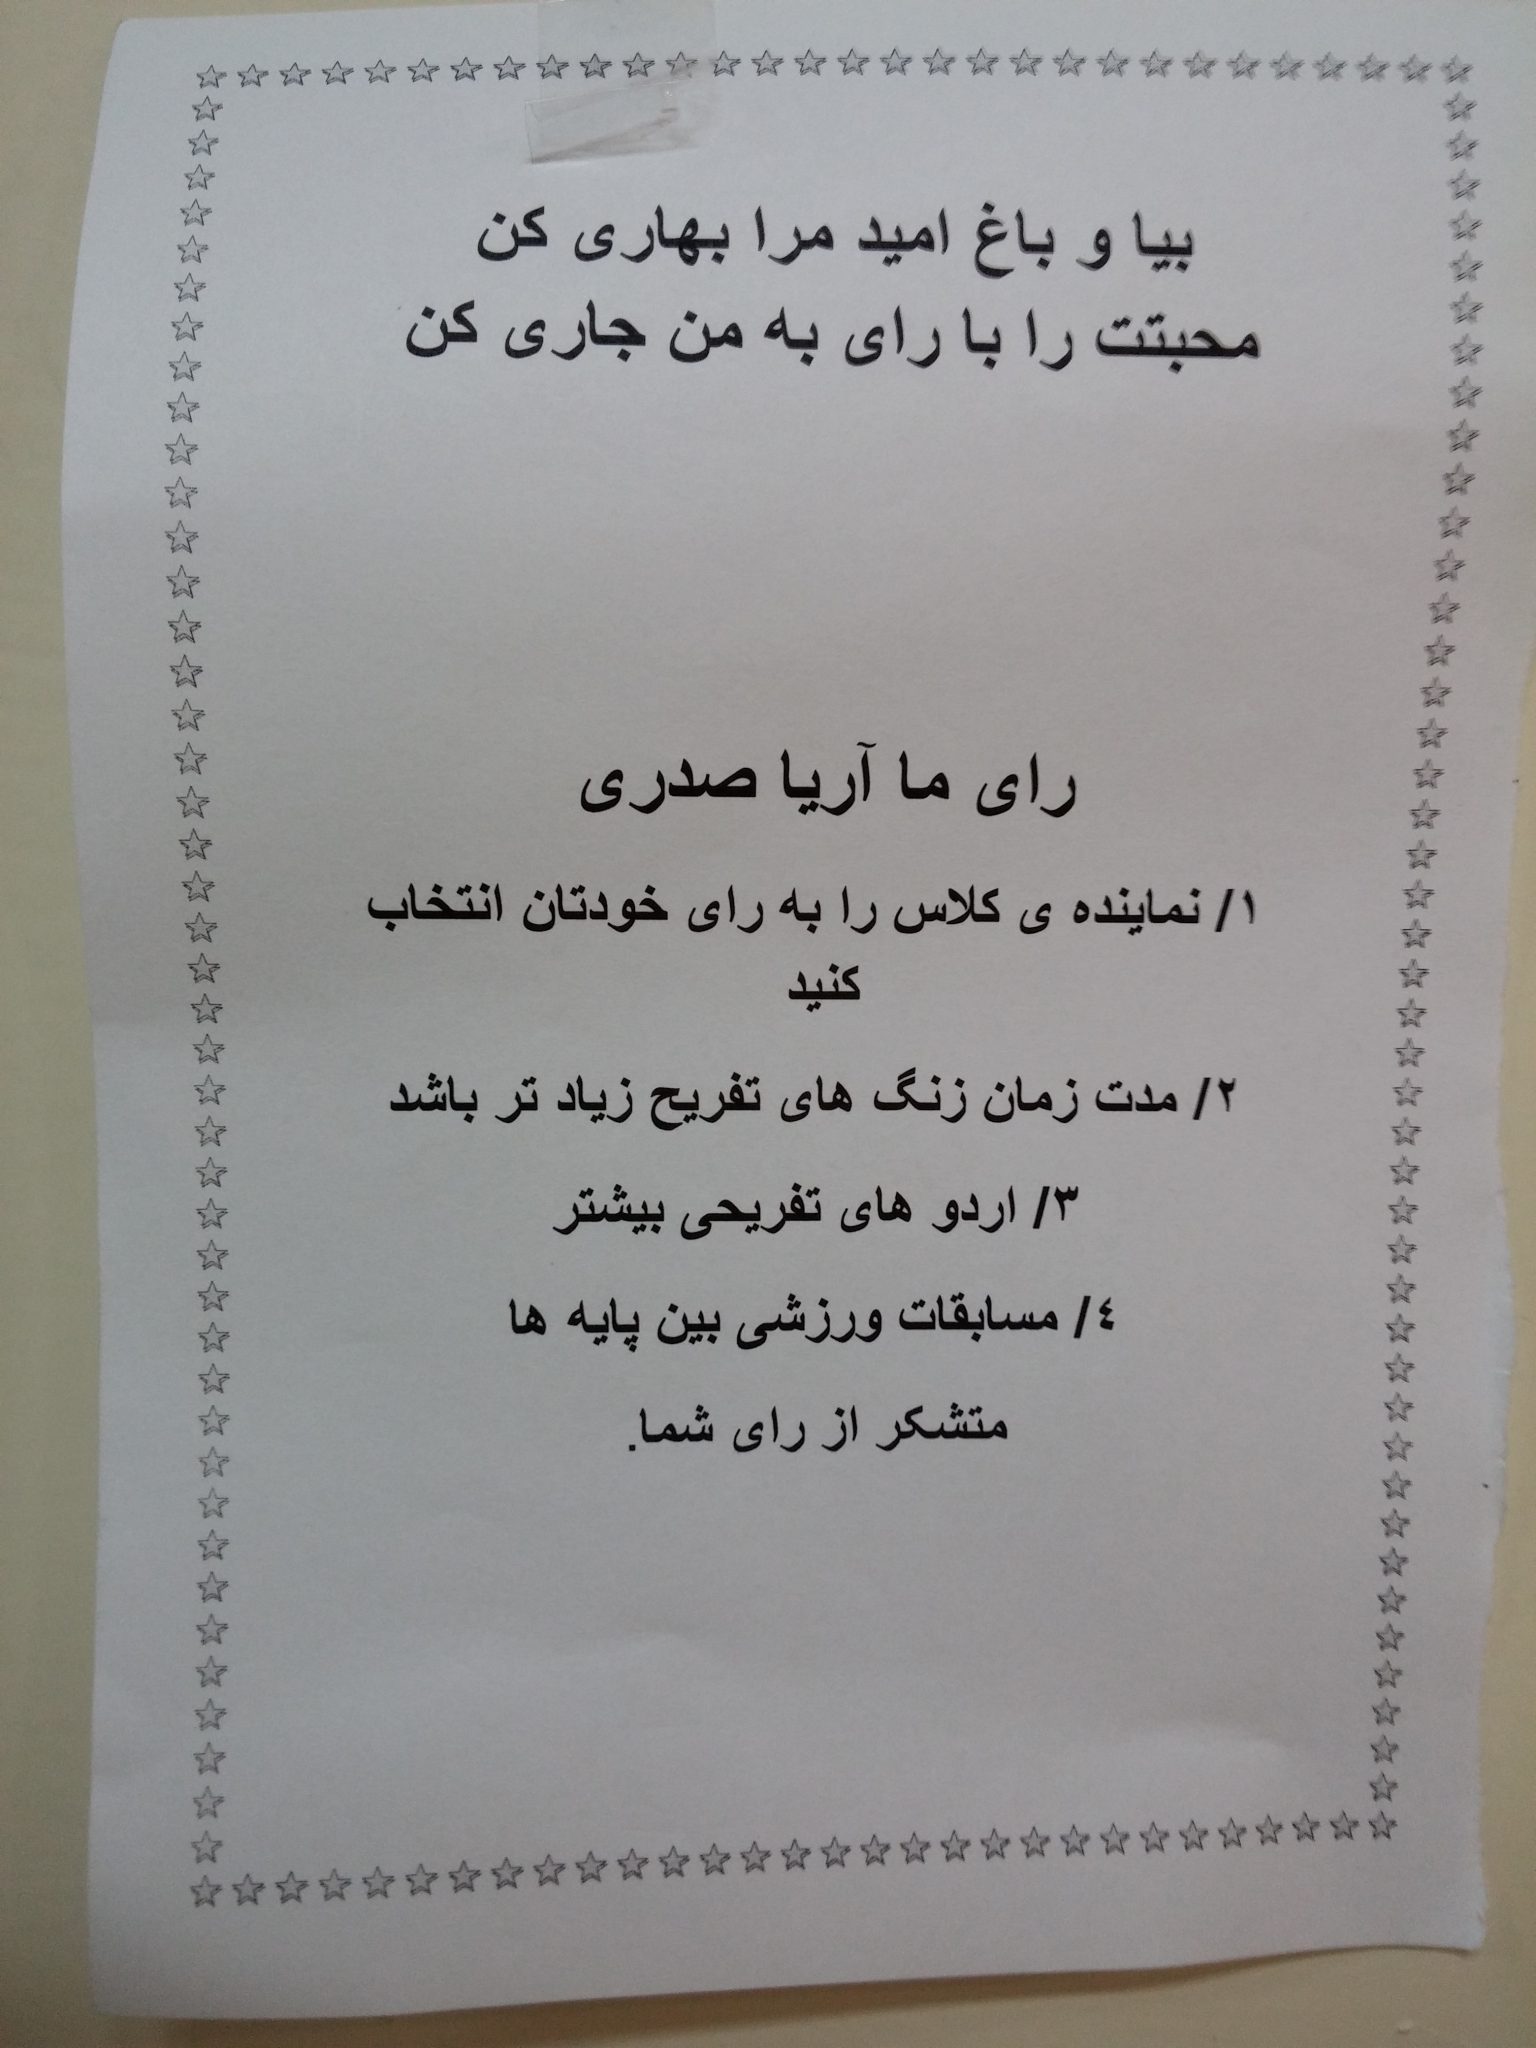 بیا و باغ امید مرا بهاری کن
محبتت را با رای به من جاری کن
رای ما آریا صدری
۱/ نماینده ی کلاس را به رای خودتان انتخاب
کنید
۲/ مدت زمان زنگ های تفریح زیاد تر باشد
۳/ اردو های تفریحی بیشتر
٤/ مسابقات ورزشی بین پایه ها
متشکر از رای شما.